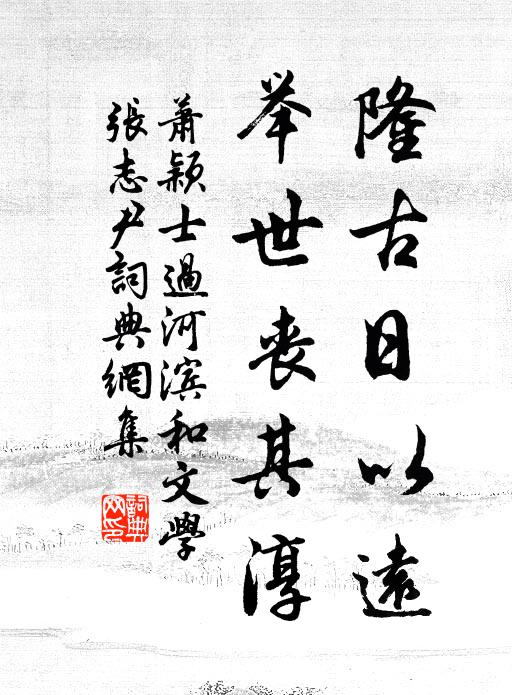 隆古日以遠
举世丧其淳
萧颖士過河滨和文學
張志尹詞典網集
詞典網印